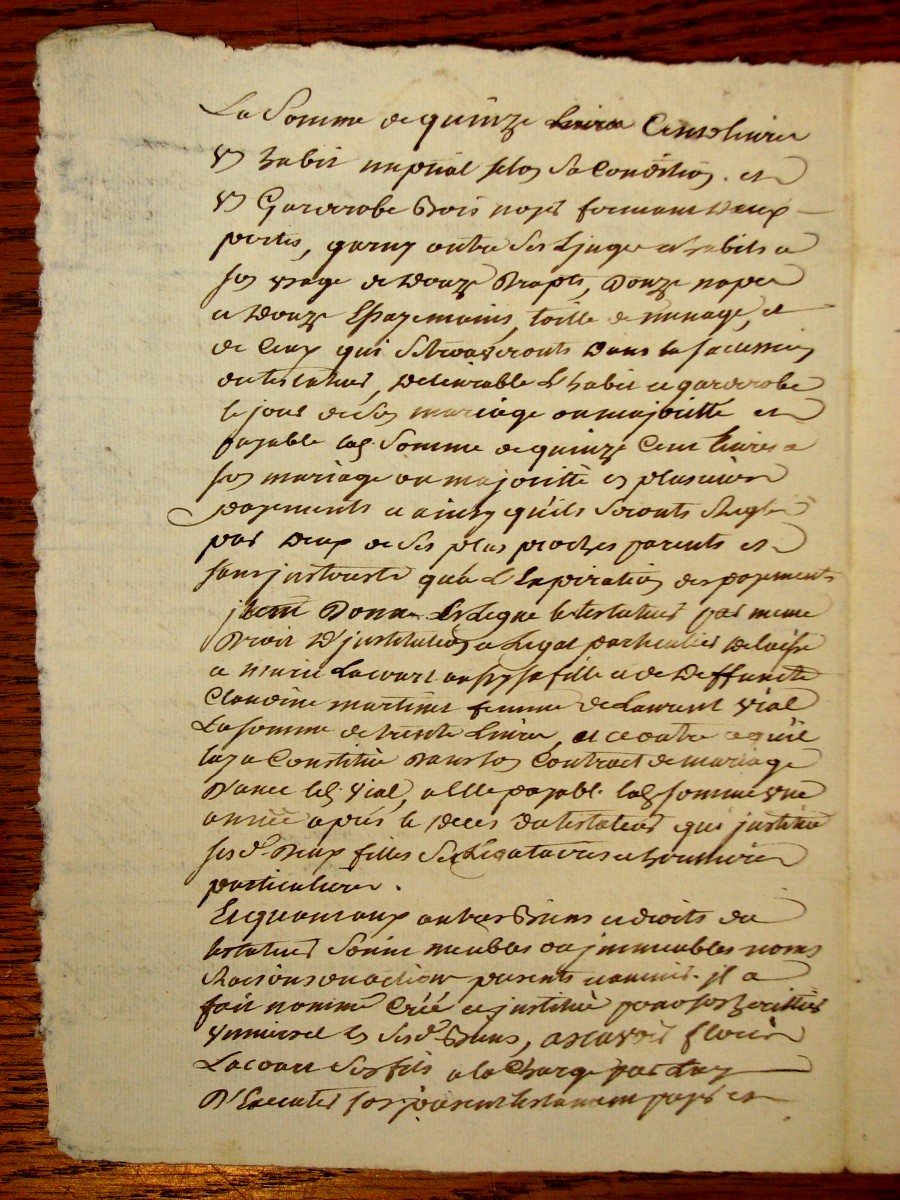 La Somme de quinze livres Cens livres
un habit nuptial selon Sa Condition. et
un Garderobe Bois noyer fermant Deux
portes, garny outre Ses Linges et habits a
son usage de Douze Draps, Douze napes
et Douze Essuyemains, toille de menage, et
de Ceux qui Se trouveronts Dans la Succession
du testateur, Delivrable L'habit et garderobe
le jour de Son mariage ou majoritté et
payable lad Somme de quinze Cent livres a
son mariage ou majoritté en plusieurs
payements et ainsy quils Seronts Regles
par Deux de Ses plus proches parents et
sans jnterests qua L'Expiration des payements
jtem Donne Et Legue le testateur par meme
Droit D'jnstitution et Legat particulier Delaisse
a Marie Lacourt aussy sa fille et de Deffuncte
Claudine martinet femme de Laurent Vial
La Somme de trente Livres, et ce outre ce qu'il
luy a Constitué Dans son Contract de mariage
D'avec led Vial, a Elle payable lad somme une
année aprés le déces Du testateur qui jnstitue
sesd. Deux filles Ses Legataires et heritieres
particulieres.
Et quant aux autres Biens et droits du
testateur Soint meubles ou jmmeubles noms
Raisons ou actions presents et avenir. jl a
fait nommé Créé et jnstitué pour son heritier
Universel en Sesd. Biens, ascavoir fleury
Lacourt Son fils a la Charge par Luy
D'Executer son present testament payer et